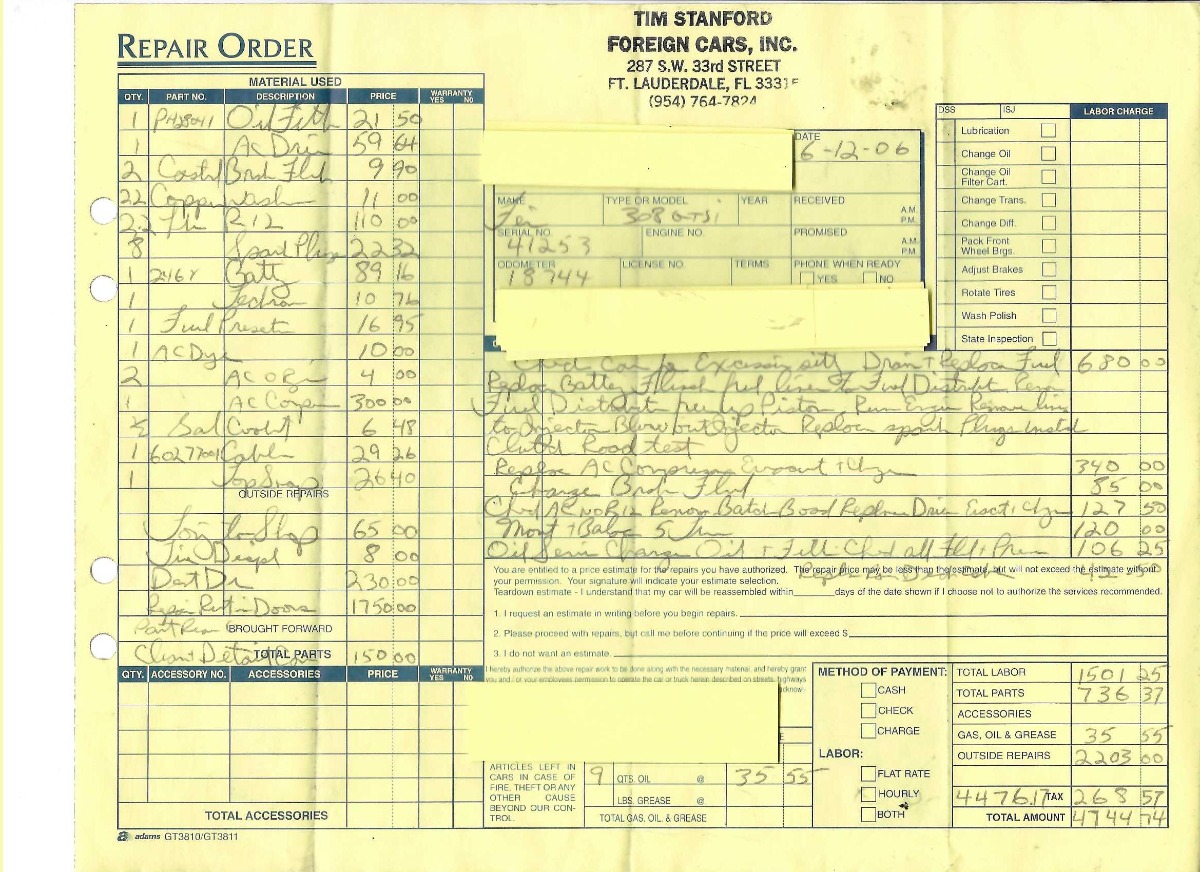 REPAIR ORDER
TIM STANFORD
FOREIGN CARS, INC.
287 S.W. 33rd STREET
FT. LAUDERDALE, FL 3331
(954) 764-7824
MATERIAL USED
QTY. PART NO. DESCRIPTION PRICE WARRANTY YES NO
1 PH28041 Oil Filt 21 50
1 AC Drier 59 64
2 Castrol Brak Fluid 9 90
22 Copper wash 11 00
2.2 R12 110 00
8 Spark Plugs 22 32
1 246Y Batt 89 16
1 Techron 10 76
1 Fuel 16 95
1 AC Dye 10 00
2 AC O Ring 4 00
1 AC Compr 300 00
½ Gal Coolant 6 48
1 60277001 Cable 29 26
1 26 40
OUTSIDE REPAIRS
Tow to Shop 65 00
Tire Dispol 8 00
Dent Dr 230 00
Repair Rust in Doors 1750 00
Paint Rear
BROUGHT FORWARD
Clean + Detail Car 150 00
TOTAL PARTS
QTY. ACCESSORY NO. ACCESSORIES PRICE WARRANTY YES NO
TOTAL ACCESSORIES
adams GT3810/GT3811
DATE
6-12-06
MAKE TYPE OR MODEL YEAR RECEIVED A.M. P.M.
Ferr 308 GTSi
SERIAL NO. ENGINE NO. PROMISED A.M. P.M.
41253
ODOMETER LICENSE NO. TERMS PHONE WHEN READY
18744 YES NO
DSS ISJ LABOR CHARGE
Lubrication
Change Oil
Change Oil Filter Cart.
Change Trans.
Change Diff.
Pack Front Wheel Brgs.
Adjust Brakes
Rotate Tires
Wash Polish
State Inspection
Check Car for Excessiv sitt Drain + Replace Fuel 680 00
Replace Battery Flush fuel lines to Fuel Distribut Remov
Fuel Distributor free up Piston Run Engin Remove lines
to Injector Blow out Injector Replace spark Plugs Install
Road test
Replace AC Compressor Evacuat + Chrg 340 00
Change Brak Fluid 85 00
Check AC No R12 Remove Replace Drier Evact + Chrg 127 50
Mount + Balance 5 Tires 120 00
Oil Servic Change Oil + Filter Check all Fld + Press 106 25
42 50
You are entitled to a price estimate for the repairs you have authorized. The repair price may be less than the estimate, but will not exceed the estimate without
your permission. Your signature will indicate your estimate selection.
Teardown estimate - I understand that my car will be reassembled within days of the date shown if I choose not to authorize the services recommended.
1. I request an estimate in writing before you begin repairs.
2. Please proceed with repairs, but call me before continuing if the price will exceed $
3. I do not want an estimate.
I hereby authorize the above repair work to be done along with the necessary material, and hereby grant
you and / or your employees permission to operate the car or truck herein described on streets, highways
ARTICLES LEFT IN
CARS IN CASE OF
FIRE, THEFT OR ANY
OTHER CAUSE
BEYOND OUR CON-
TROL.
9 QTS. OIL @ 35 55
LBS. GREASE @
TOTAL GAS, OIL & GREASE
METHOD OF PAYMENT:
CASH
CHECK
CHARGE
LABOR:
FLAT RATE
HOURLY
BOTH
TOTAL LABOR 1501 25
TOTAL PARTS 736 37
ACCESSORIES
GAS, OIL & GREASE 35 55
OUTSIDE REPAIRS 2203 00
4476.17 TAX 268 57
TOTAL AMOUNT 4744 74